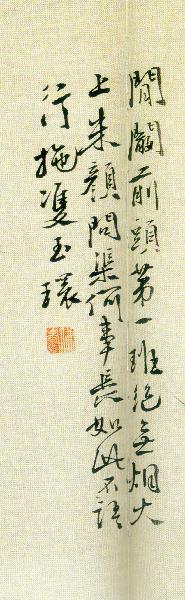 閶闔前頭第一班絕無烟火
上朱顏問渠何事長如此不語
行拖雙玉環